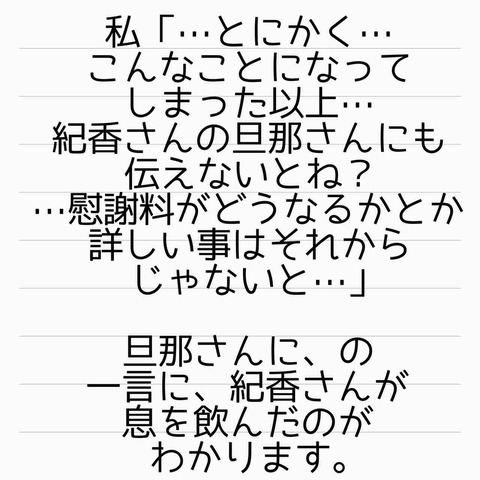 私「…とにかく…
こんなことになって
しまった以上…
紀香さんの旦那さんにも
伝えないとね？
…慰謝料がどうなるかとか
詳しい事はそれから
じゃないと…」
旦那さんに、の
一言に、紀香さんが
息を飲んだのが
わかります。